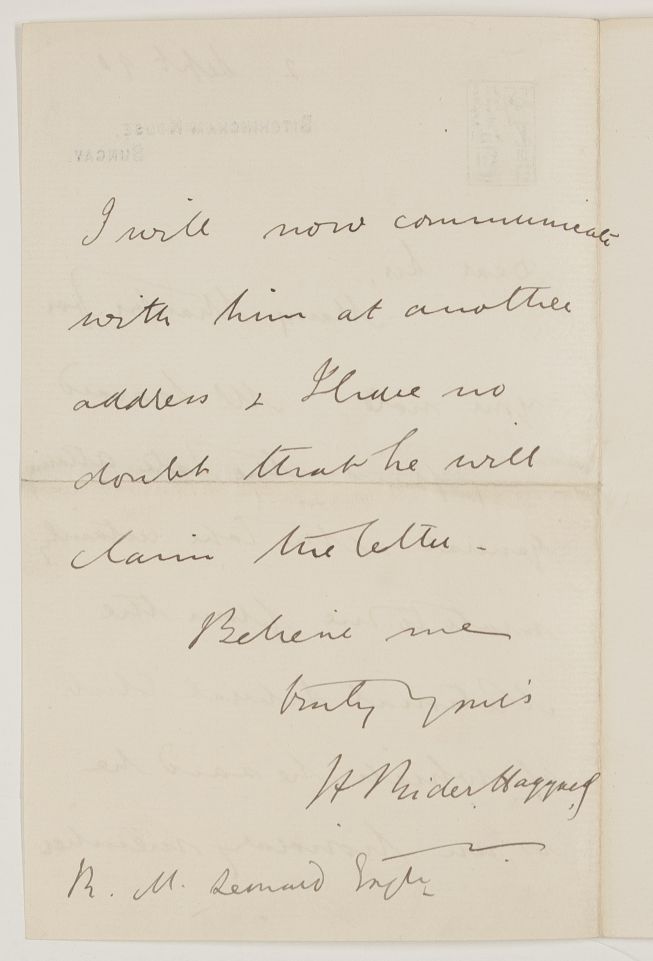 I will now communicate
with him at another
address & I have no
doubt that he will
claim the letter -
Believe me
truly yours
H Rider Haggard
R. M. Leonard Esqre
DITCHINGHAM HOUSE,
BUNGAY.